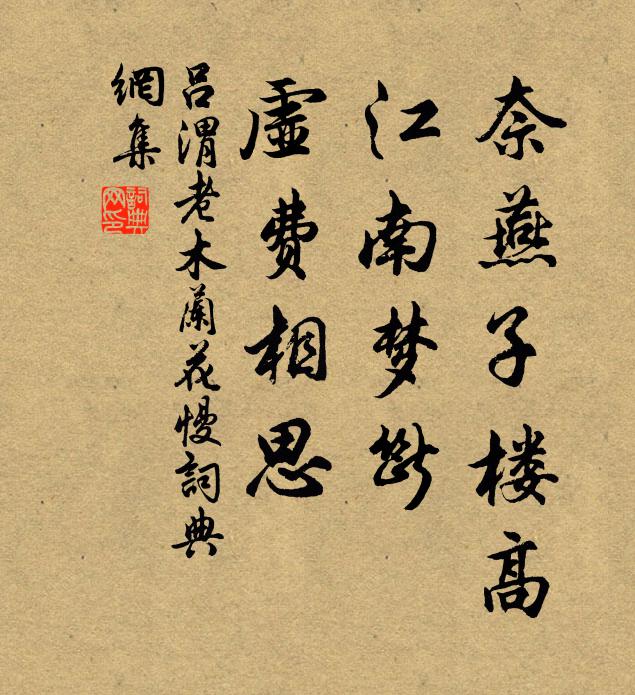 奈燕子楼高
江南梦断
虚费相思
吕渭老木兰花慢詞典
網集
詞典
网印